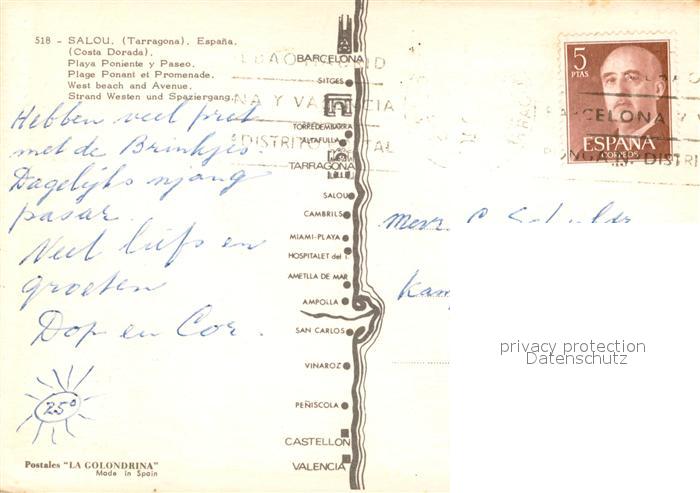 518 - SALOU. (Tarragona). España.
(Costa Dorada).
Playa Poniente y Paseo.
Plage Ponant et Promenade.
West beach and Avenue.
Strand Westen und Spaziergang.
Hebben veel pret
met de Brinkjes.
Dagelijks njang
pasar.
Veel liefs en
groeten
Dop en Cor.
25°
Postales "LA GOLONDRINA"
Made in Spain
BARCELONA
SITGES
TORREDEMBARRA
ALTAFULLA
TARRAGONA
SALOU
CAMBRILS
MIAMI-PLAYA
HOSPITALET del I.
AMETLLA DE MAR
AMPOLLA
SAN CARLOS
VINAROZ
PEÑISCOLA
CASTELLON
VALENCIA
5
PTAS
ESPAÑA
CORREOS
NA Y VALENCIA
DISTRITO POSTAL
BARCELONA Y V
DISTRI
Mevr.
privacy protection
Datenschutz